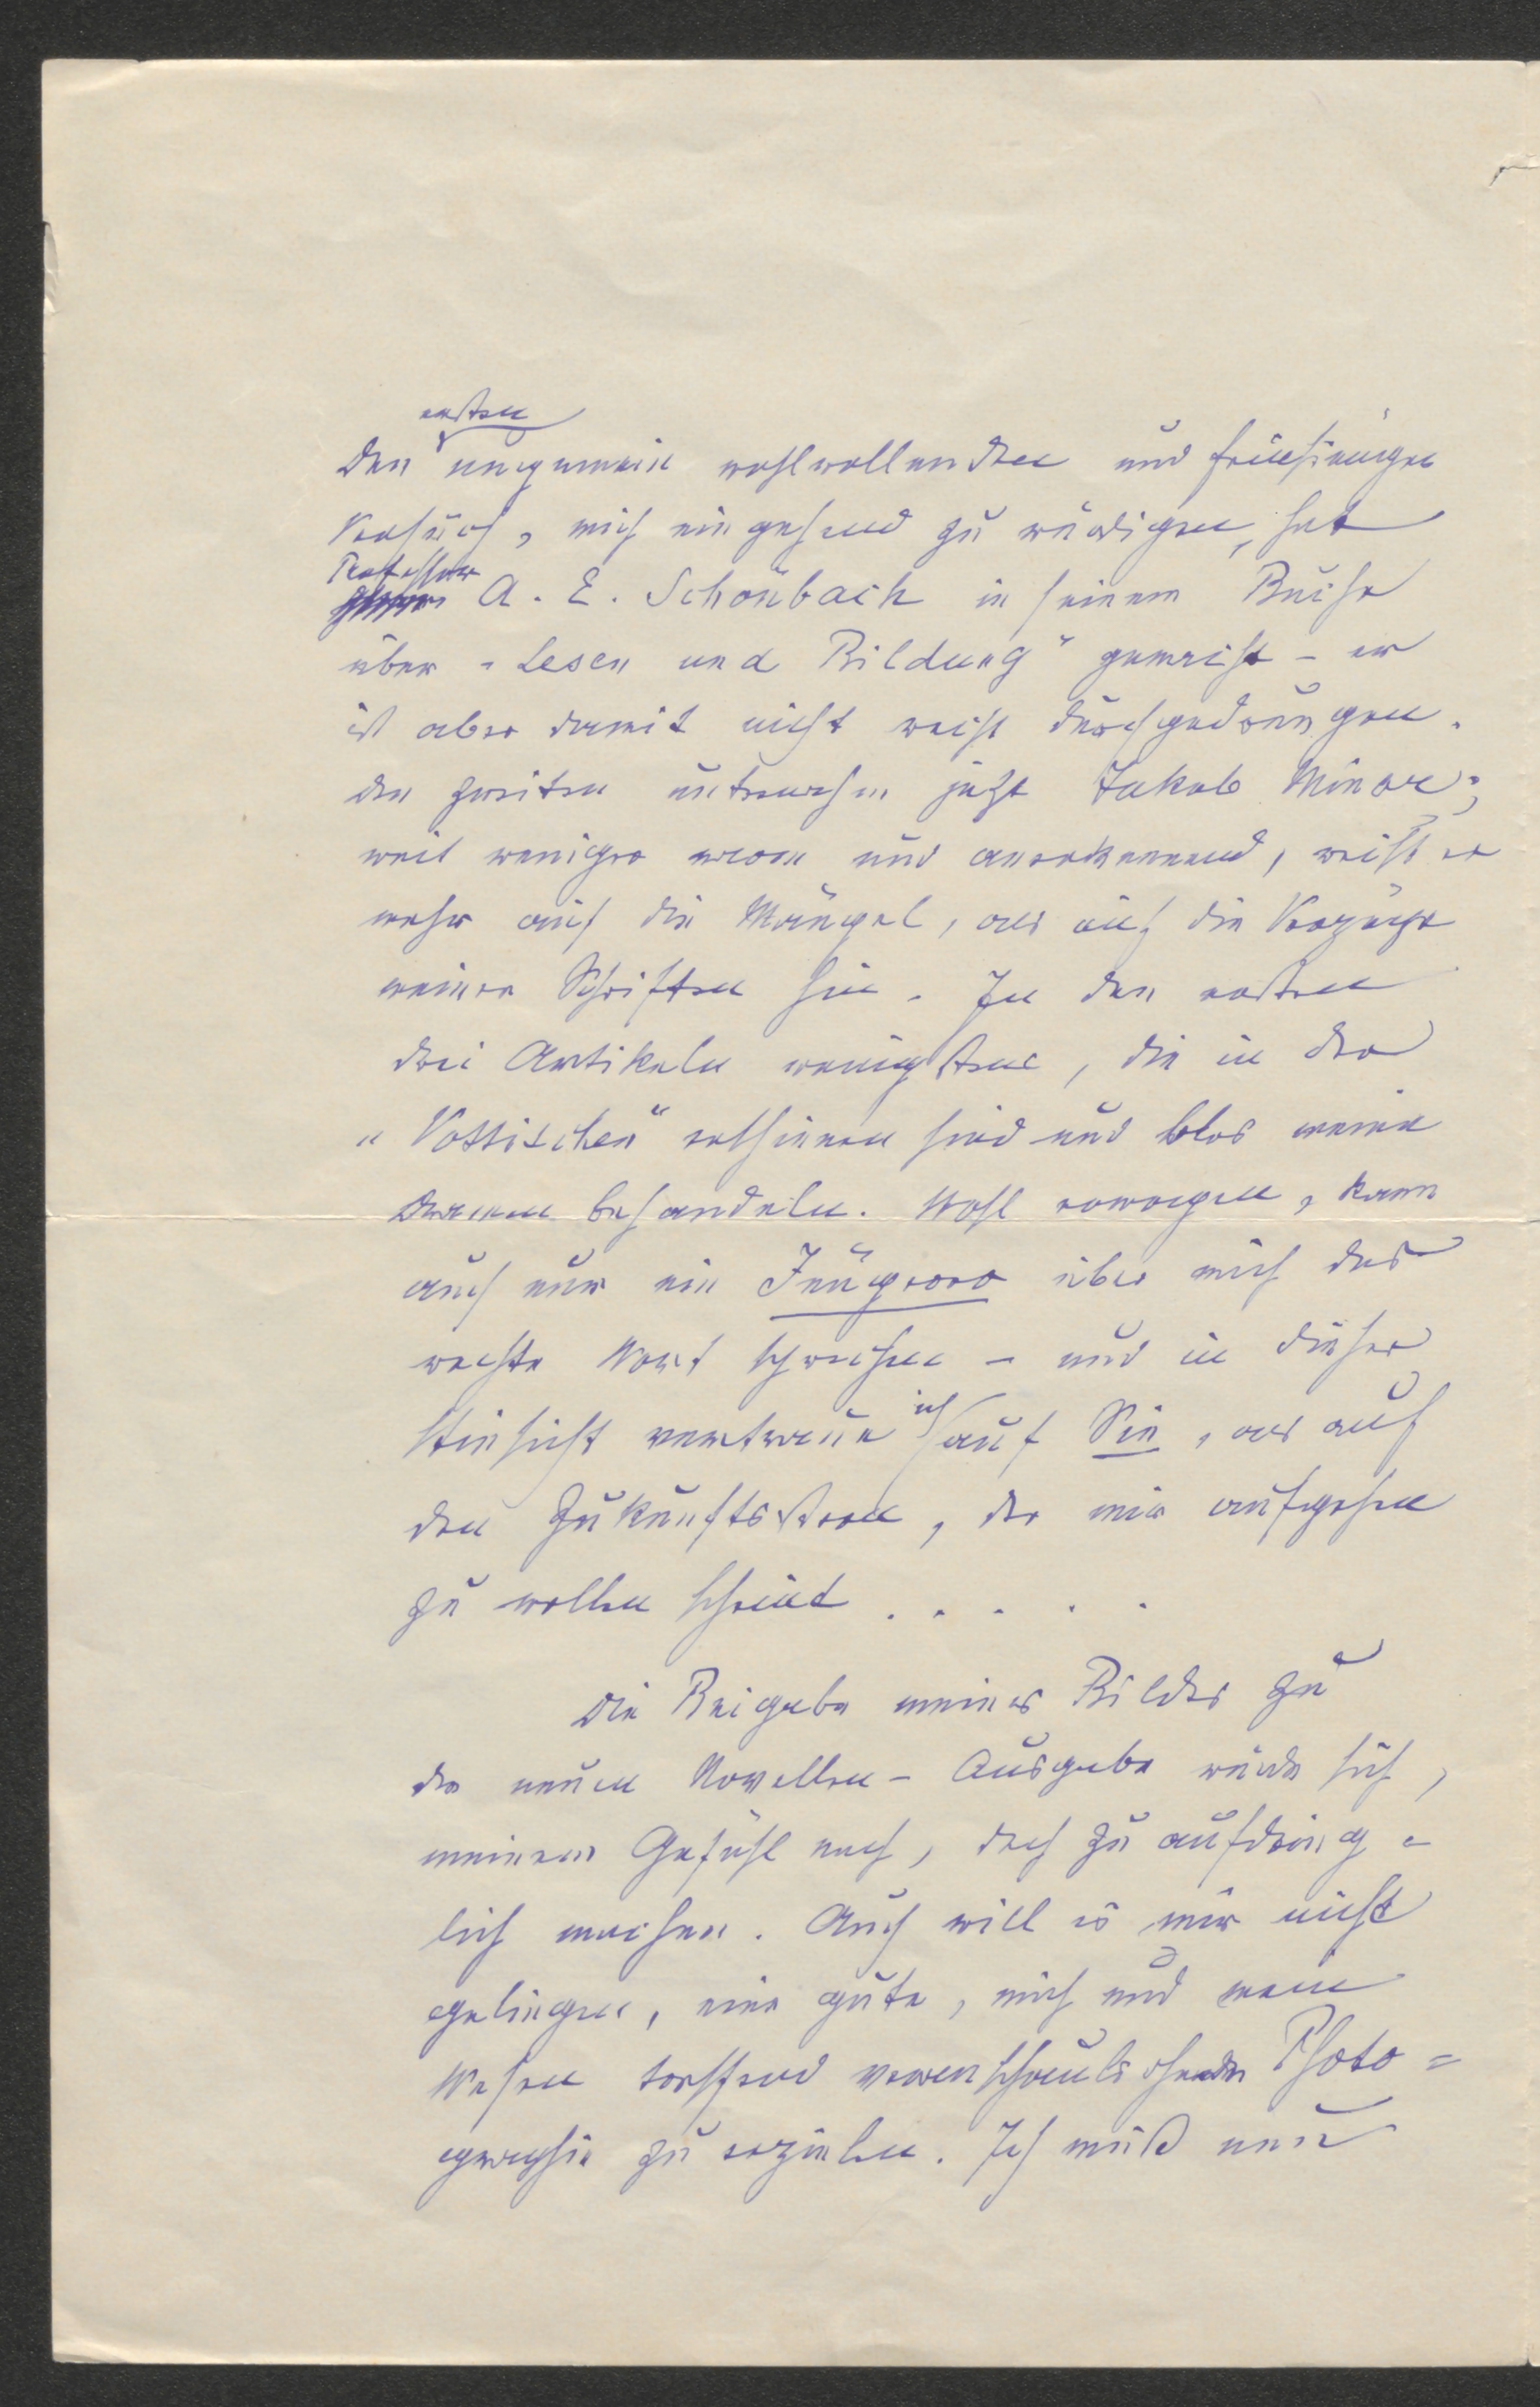 ersten
Den ungemein wohlwollenden und feinsinnigen
Versuch, mich eingehend zu würdigen, hat
Professor
A. E. Schönbach in seinem Buche
über „Lesen und Bildung“ gemacht – er
ist aber damit nicht recht durchgedrungen.
Den zweiten unternahm jetzt Jakob Minor;
weit weniger warm und anerkennend, weist er
mehr auf die Mängel, als auf die Vorzüge
meiner Schriften hin. In den ersten
drei Artikeln wenigstens, die in der
„Vossischen“ erschienen sind und blos meine
Dramen behandeln. Wohl erwogen, kann
auch nur ein Jüngerer über mich das
rechte Wort sprechen – und in dieser
Hinsicht vertraue ich auf Sie, als auf
den Zukunftsstern, der mir aufgehen
zu wollen scheint . . . . .
Die Beigabe meines Bildes zu
der neuen Novellen-Ausgabe würde sich,
meinem Gefühl nach, doch zu aufdring-
lich machen. Auch will es mir nicht
gelingen, eine gute, mich und mein
Wesen treffend veranschaulichende Photo=
graphie zu erzielen. Ich muß nun